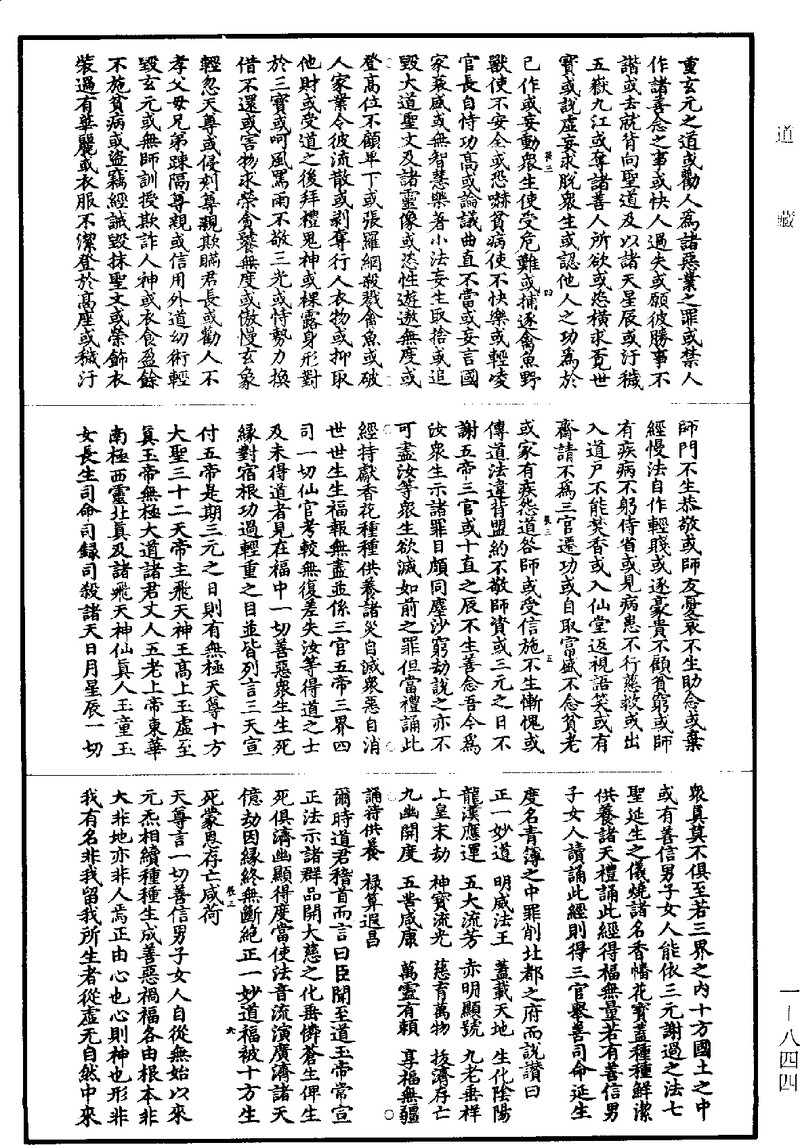 道藏
一—八四四
重玄元之道或勸人為諸惡業之罪或禁人
作諸善念之事或快人過失或願彼勝事不
諧或去就背向聖道及以諸天星辰或汙穢
五嶽九江或奪諸善人所欲或恣橫求覓世
寶或說虛妄求脫衆生或認他人之功為於
己作或妄動衆生使受危難或捕逐禽魚野
獸使不安全或恐嚇貧病使不快樂或輕凌
官長自恃功高或論議曲直不當或妄言國
家災感或無智慧樂著小法妄生取捨或追
毀大道聖文及諸靈像或恣性遊遨無度或
登高位不顧卑下或張羅網殺戮禽魚或破
人家業令彼流散或剥奪行人衣物或抑取
他財或受道之後拜禮鬼神或裸露身形對
於三寶或呵風罵雨不敬三光或恃勢力換
借不還或害物求榮貪饕無度或傲慢玄象
輕忽天尊或侵剋尊親欺瞞君長或勸人不
孝父母兄弟踈隔尊親或信用外道幻術輕
毀玄元或無師訓授欺詐人神或衣食盈餘
不施貧病或盜竊經誡毀抹聖文或榮飾衣
裝過有華麗或衣服不潔登於高座或穢汙
師門不生恭敬或師友憂哀不生助念或棄
經慢法自作輕賤或逐豪貴不顧貧窮或師
有疾病不躬侍省或見病患不行慈救或出
入道戶不能焚香或入仙堂返視語笑或有
齋請不為三官遷功或自取富盛不念貧老
或家有疾怨道咎師或受信施不生慚愧或
傳道法違背盟約不敬師資或三元之日不
謝五帝三官或十直之辰不生善念吾今為
汝衆生示諸罪目頗同塵沙窮劫說之亦不
可盡汝等衆生欲滅如前之罪但當禮誦此
經持獻香花種種供養諸災自滅衆惡自消
世世生生福報無盡並係三官五帝三界四
司一切仙官考較無復差失汝等得道之士
及未得道者見在福中一切善惡衆生生死
緣對宿根功過輕重之目並皆列言三天宣
付五帝是期三元之日則有無極天尊十方
大聖三十二天帝主飛天神王高上玉虛至
真玉帝無極大道諸君丈人五老上帝東華
南極西靈北真及諸飛天神仙真人玉童玉
女長生司命司録司殺諸天日月星辰一切
衆真莫不俱至若三界之内十方國土之中
或有善信男子女人能依三元謝過之法七
聖延生之儀燒諸名香幡花寶蓋種種鮮潔
供養諸天禮誦此經得福無量若有善信男
子女人讀誦此經則得三官舉善司命延生
度名青簿之中罪削北都之府而說讚曰
正一妙道　明威法王　蓋載天地　生化陰陽
龍漢應運　五大流芳　赤明顯號　九老垂祥
上皇末劫　神寶流光　慈育萬物　拔濟存亡
九幽開度　五苦咸康　萬靈有賴　享福無疆
誦持供養　祿筭遐昌
爾時道君稽首而言曰臣聞至道玉帝常宣
正法示諸群品開大慈之化垂憐蒼生俾生
死俱濟幽顯得度當使法音流演廣濟諸天
億劫因緣終無斷絕正一妙道福被十方生
死蒙恩存亡咸荷
天尊言一切善信男子女人自從無始以來
元炁相續種種生成善惡禍福各由根本非
大非地亦非人焉正由心也心則神也形非
我有名非我留我所生者從虛无自然中來